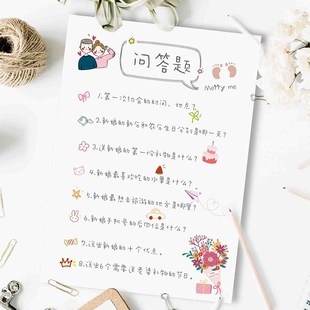 问答题
Marry me
1.第一次约会的时间、地点？
2.新娘的新历和农历生日分别是哪一天？
3.送新娘的第一份礼物是什么？
4.新娘最喜欢吃的小菜是什么？
5.新娘最想去旅游的地方是哪里？
6.新娘手机号的后四位是什么？
7.说出新娘的十个优点。
8.说出6个需要送老婆礼物的节日。